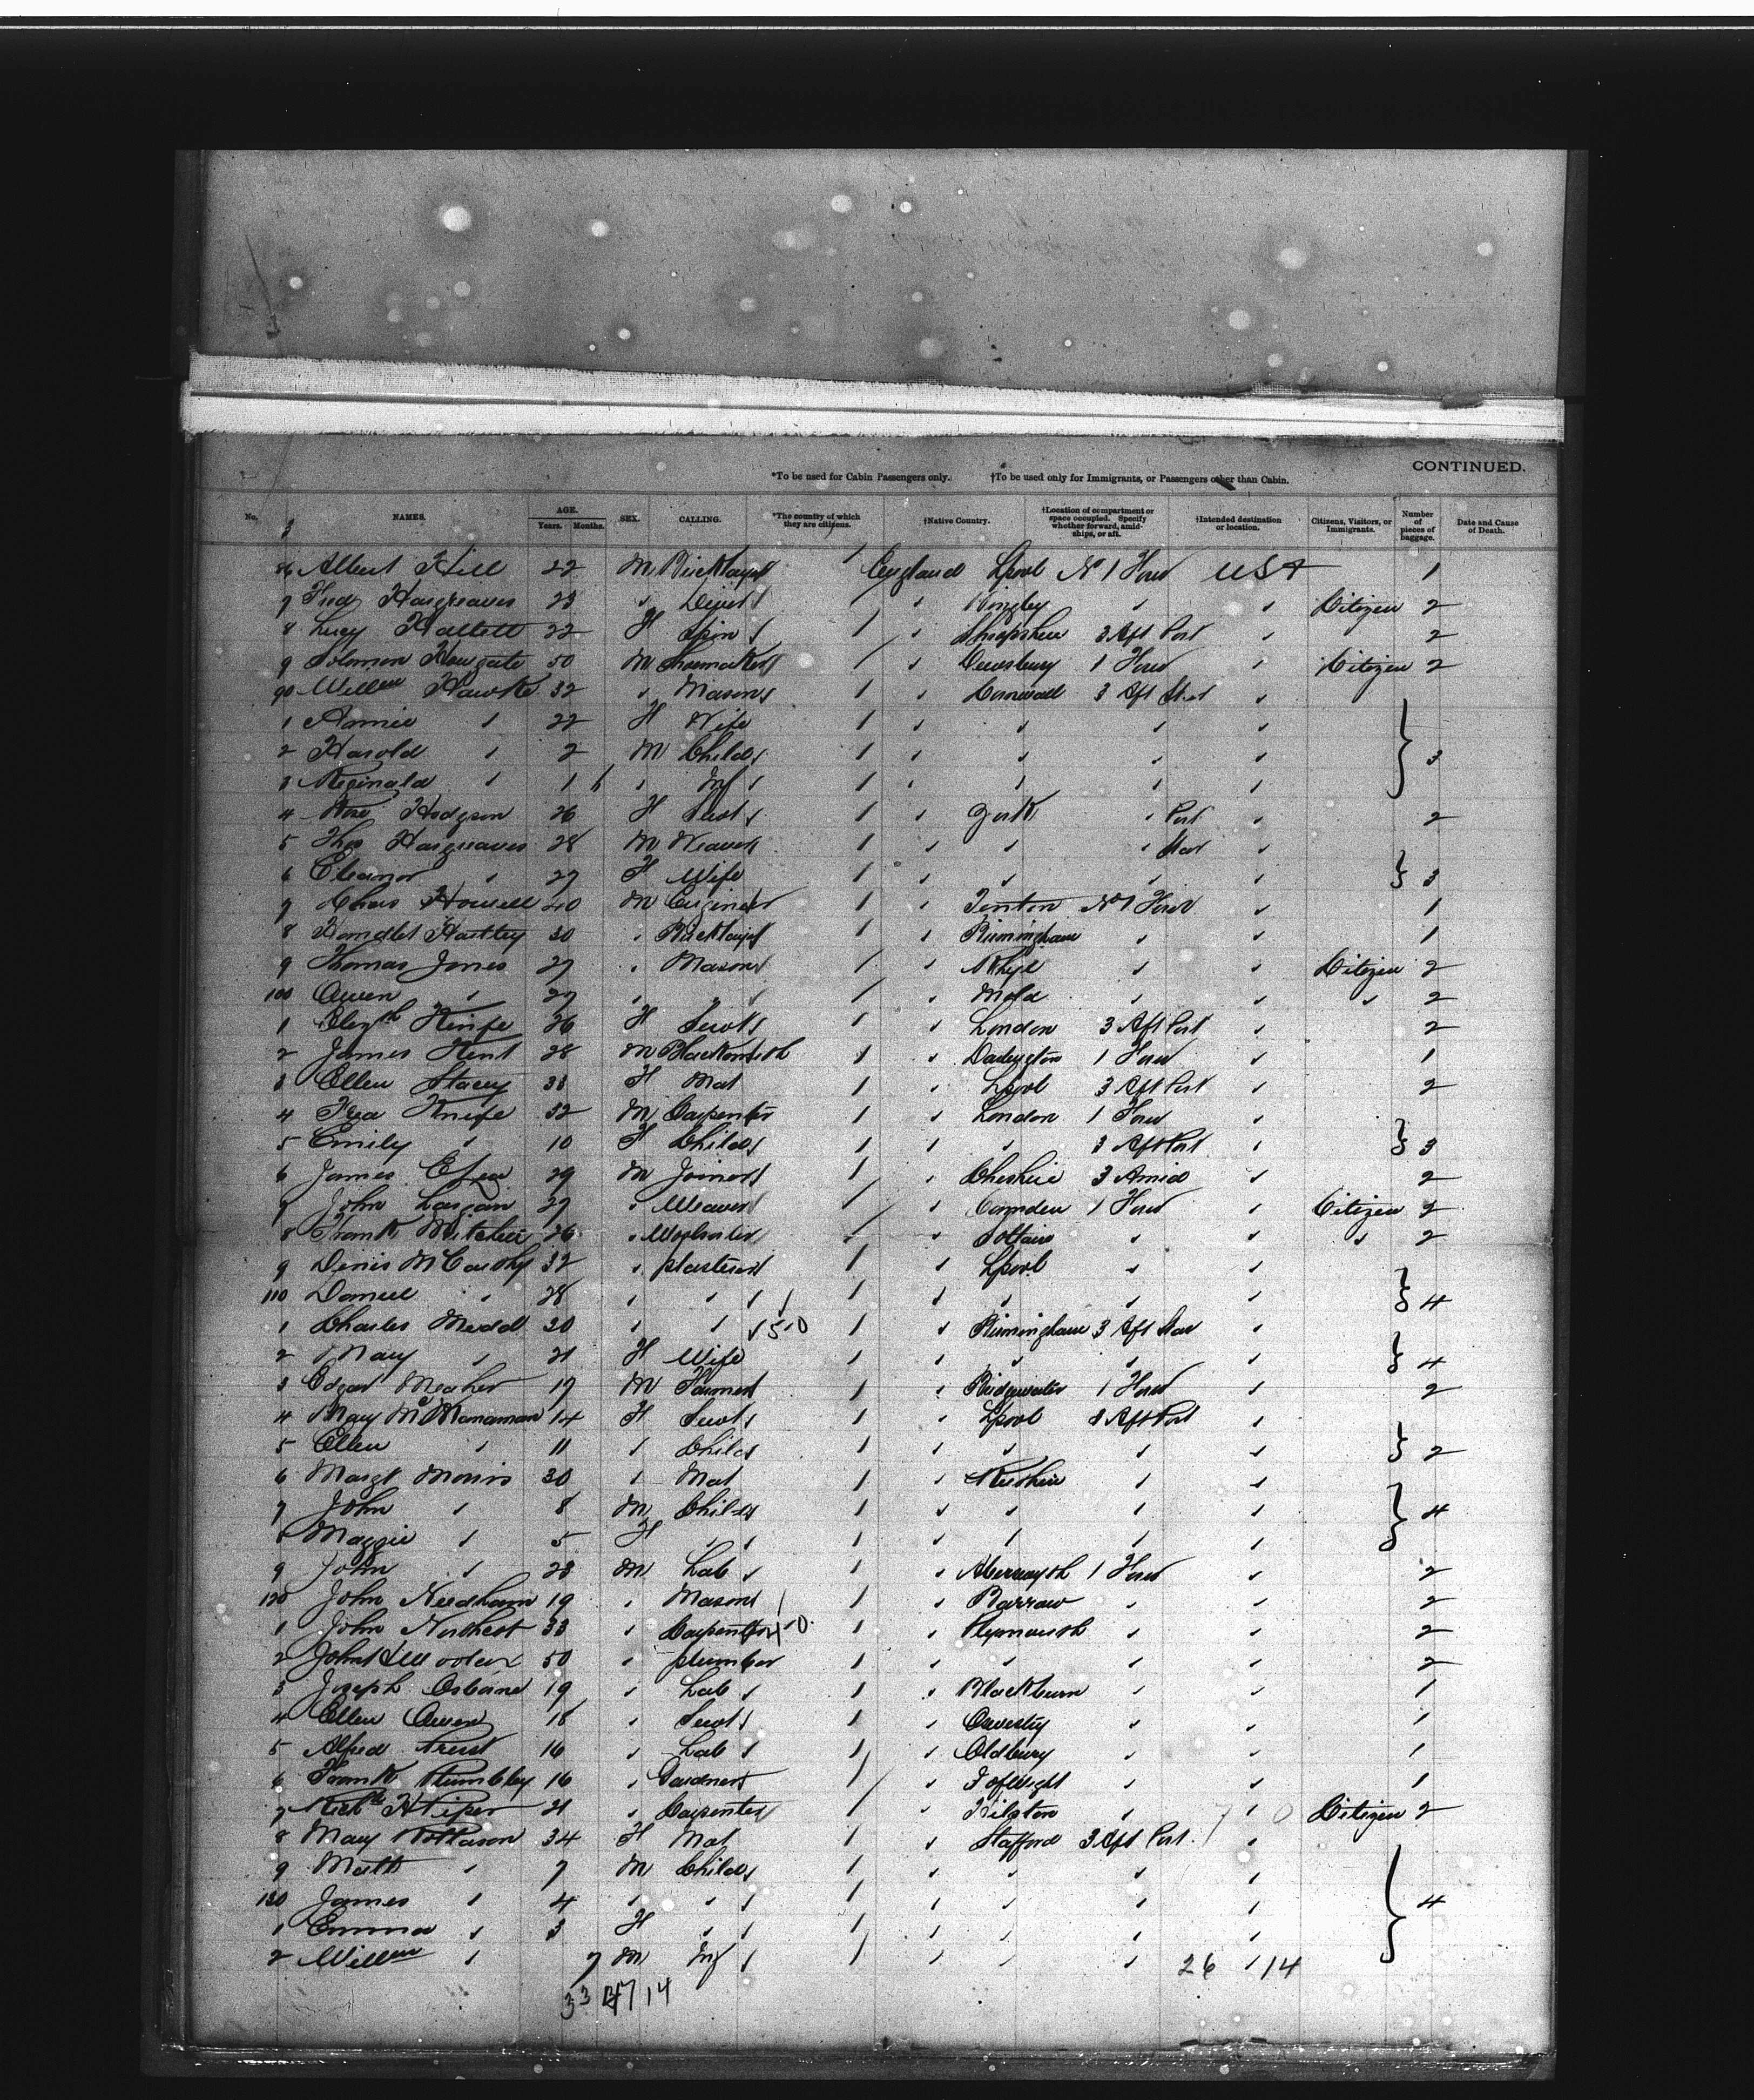 CONTINUED.
*To be used for Cabin Passengers only. †To be used only for Immigrants, or Passengers other than Cabin.
No. NAMES. AGE. Years. Months. SEX. CALLING. *The country of which they are citizens. †Native Country. †Location of compartment or space occupied. Specify whether forward, amidships, or aft. †Intended destination or location. Citizens, Visitors, or Immigrants. Number of pieces of baggage. Date and Cause of Death.
3
86 Albert Hill 22 M Bricklayer / England Lpool No 1 Forw USA 1
7 Fred Hargreaves 23 " / " " " Citizen 2
8 Lucy Hallett 22 F Spin / " Shropshire 3 Aft Port " 2
9 Solomon Howgate 50 M Shoemaker / " Dewsbury 1 Forw " Citizen 2
90 Willm Hawke 32 " Mason / " Cornwall 3 Aft Star "
1 Annie " 22 F Wife / " " " "
2 Harold " 2 M Child / " " " " 3
3 Reginald " 1 " Inf / " " " "
4 Rose Hodgson 26 F Servt / " York " Port " 2
5 Thos Hargreaves 28 M Weaver / " " " Star "
6 Eleanor " 27 F Wife / " " " " 3
7 Chas Howell 40 M Engineer / " No 1 Forw " 1
8 Hamdlet Hartley 30 " Bricklayer / " Birmingham " " 1
9 Thomas Jones 27 " Mason / " Rhyl " " Citizen 2
100 Owen " 27 " " / " Mold " " " 2
1 Elizth Knife 26 F Servt / " London 3 Aft Port " 2
2 James Kent 28 M Blacksmith / " Darlington 1 Forw " 1
3 Ellen Stacey 33 F Mat / " Lpool 3 Aft Port " 2
4 Fred Knife 32 M Carpenter / " London 1 Forw "
5 Emily " 10 F Child / " " 3 Aft Port " 3
6 James 29 M Joiner / " Cheshire 3 Amid " 2
7 John Largan 27 " Weaver / " Camden 1 Forw " Citizen 2
8 Frank 26 " / " " " " 2
9 Denis McCarthy 32 " plasterer / " Lpool " "
110 Daniel " 28 " " / " " " " 4
1 Charles Medd 30 " " / " Birmingham 3 Aft Star "
2 Mary " 21 F Wife / " " " " 4
3 Edgar Meaker 17 M Farmer / " Bridgwater 1 Forw " 2
4 Mary McManaman 14 F Servt / " Lpool 3 Aft Port "
5 Ellen " 11 " Child / " " " " 2
6 Margt Morris 30 " Mat / " " "
7 John " 8 M Child / " " " " 4
8 Maggie " 5 F " / " " " "
9 John " 23 M Lab / " 1 Forw " 2
120 John Needham 19 " Mason / " Barrow " " 2
1 John Northcot 33 " Carpenter / " Plymouth " " 2
2 John 50 " plumber / " " " " 2
3 Joseph Osborne 19 " Lab / " Blackburn " " 1
4 Ellen Owen 18 " Servt / " Oswestry " " 1
5 Alfred 16 " Lab / " Oldbury " " 1
6 Frank Plumbley 16 " Gardner / " I of Wight " " 1
7 Richd H Piper 21 " Carpenter / " " " Citizen 2
8 Mary 34 F Mat / " Stafford 3 Aft Port "
9 Matt " 7 M Child / " " " "
130 James " 4 " " / " " " " 4
1 Emma " 3 F " / " " " "
2 Willm " 7 M Inf / " " " 26 " 14
33 47 14